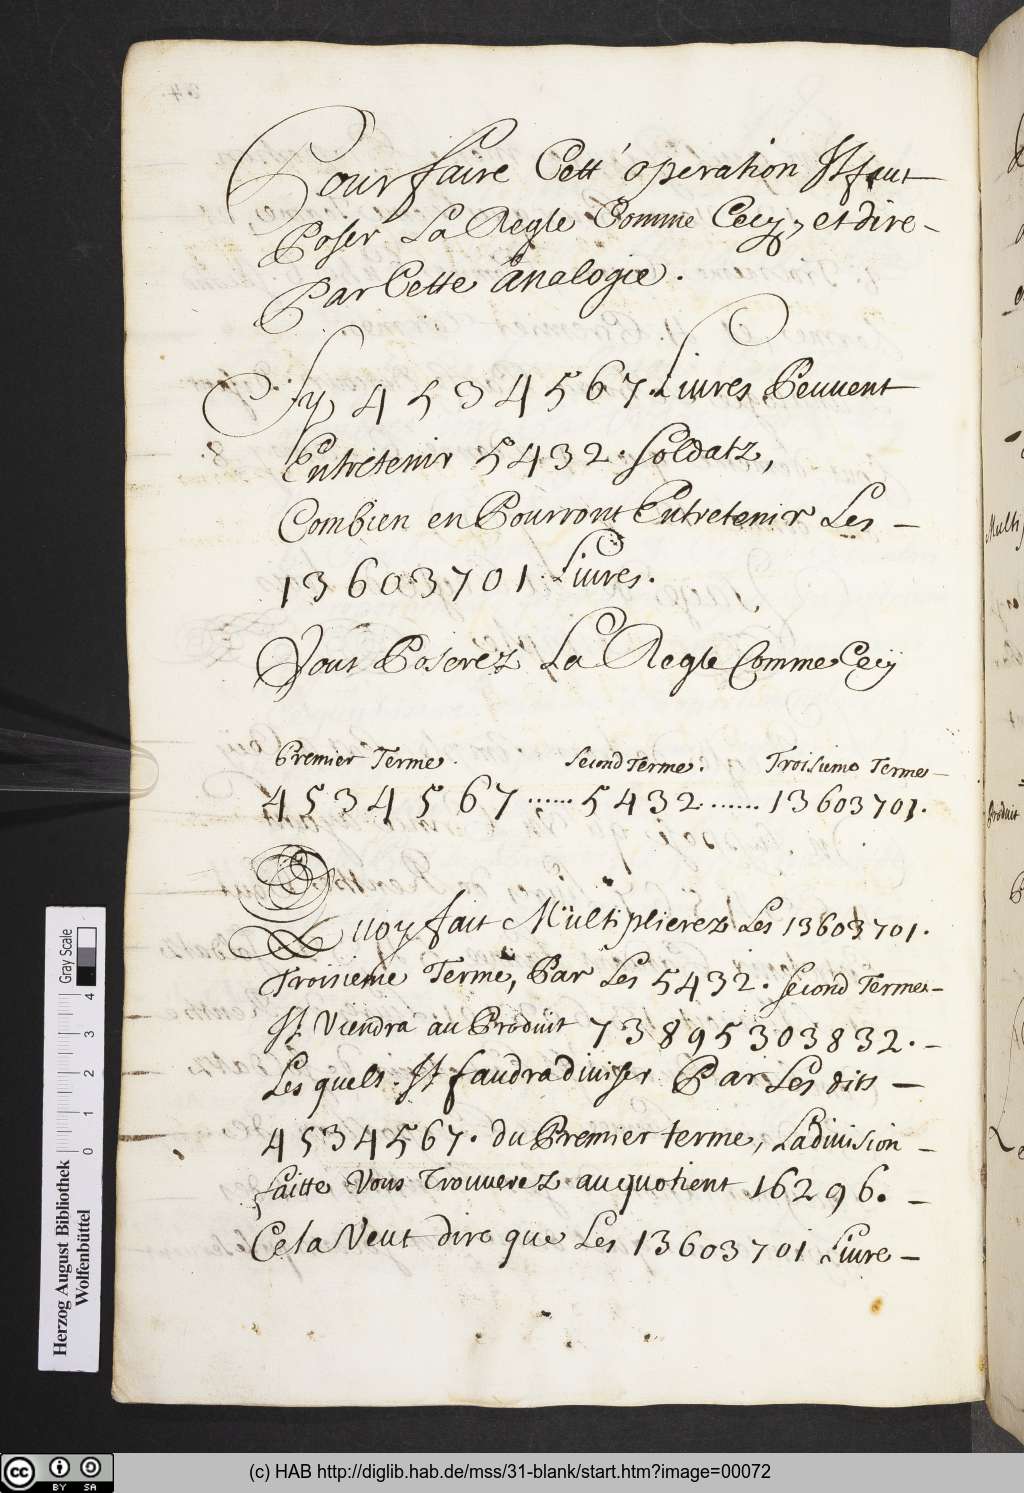 Pour faire Cett' operation Il faut
Poser La Regle Comme Cecy, et dire
Par Cette analogie.
Sy 4534567 Livres Peuvent
Entretenir 5432. soldatz,
Combien en Pourront Entretenir Les
13603701. Livres.
Vous Poserez La Regle Comme Cecÿ
Premier Terme. Second Terme. Troisieme Terme
4534567 ...... 5432 ...... 13603701.
Quoy fait Mültiplierez Les 13603701.
Troisieme Terme, Par Les 5432. Second Terme
Il Viendra au Prodüit 73895303832.
Les quels. Il faudra diviser Par Les dits
4534567. du Premier terme, La division
faitte Vous Trouverez au quotient 16296.
Cela Veut dire que Les 13603701 Livre
Multi
Produit
Gray Scale
0 1 2 3 4
Herzog August Bibliothek
Wolfenbüttel
cc BY SA
(c) HAB http://diglib.hab.de/mss/31-blank/start.htm?image=00072